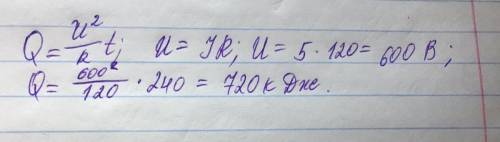 Q = U²/R t; U = IR; U = 5 · 120 = 600 В;
Q = 600²/120 · 240 = 720 к Дж.